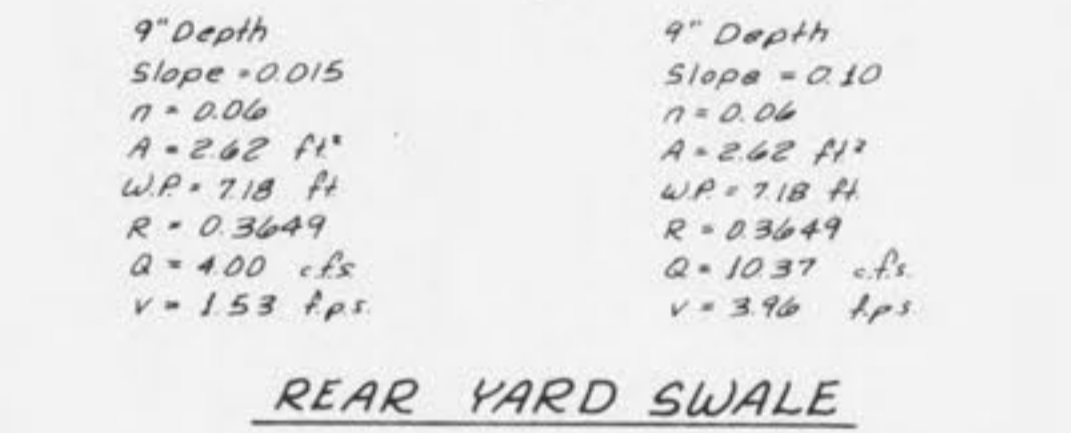 9" Depth
Slope = 0.015
n = 0.06
A = 2.62 ft²
W.P. = 7.18 ft
R = 0.3649
Q = 4.00 c.f.s
v = 1.53 f.p.s.
9" Depth
Slope = 0.10
n = 0.06
A = 2.62 ft²
W.P. = 7.18 ft.
R = 0.3649
Q = 10.37 c.f.s.
v = 3.96 f.p.s.
REAR YARD SWALE